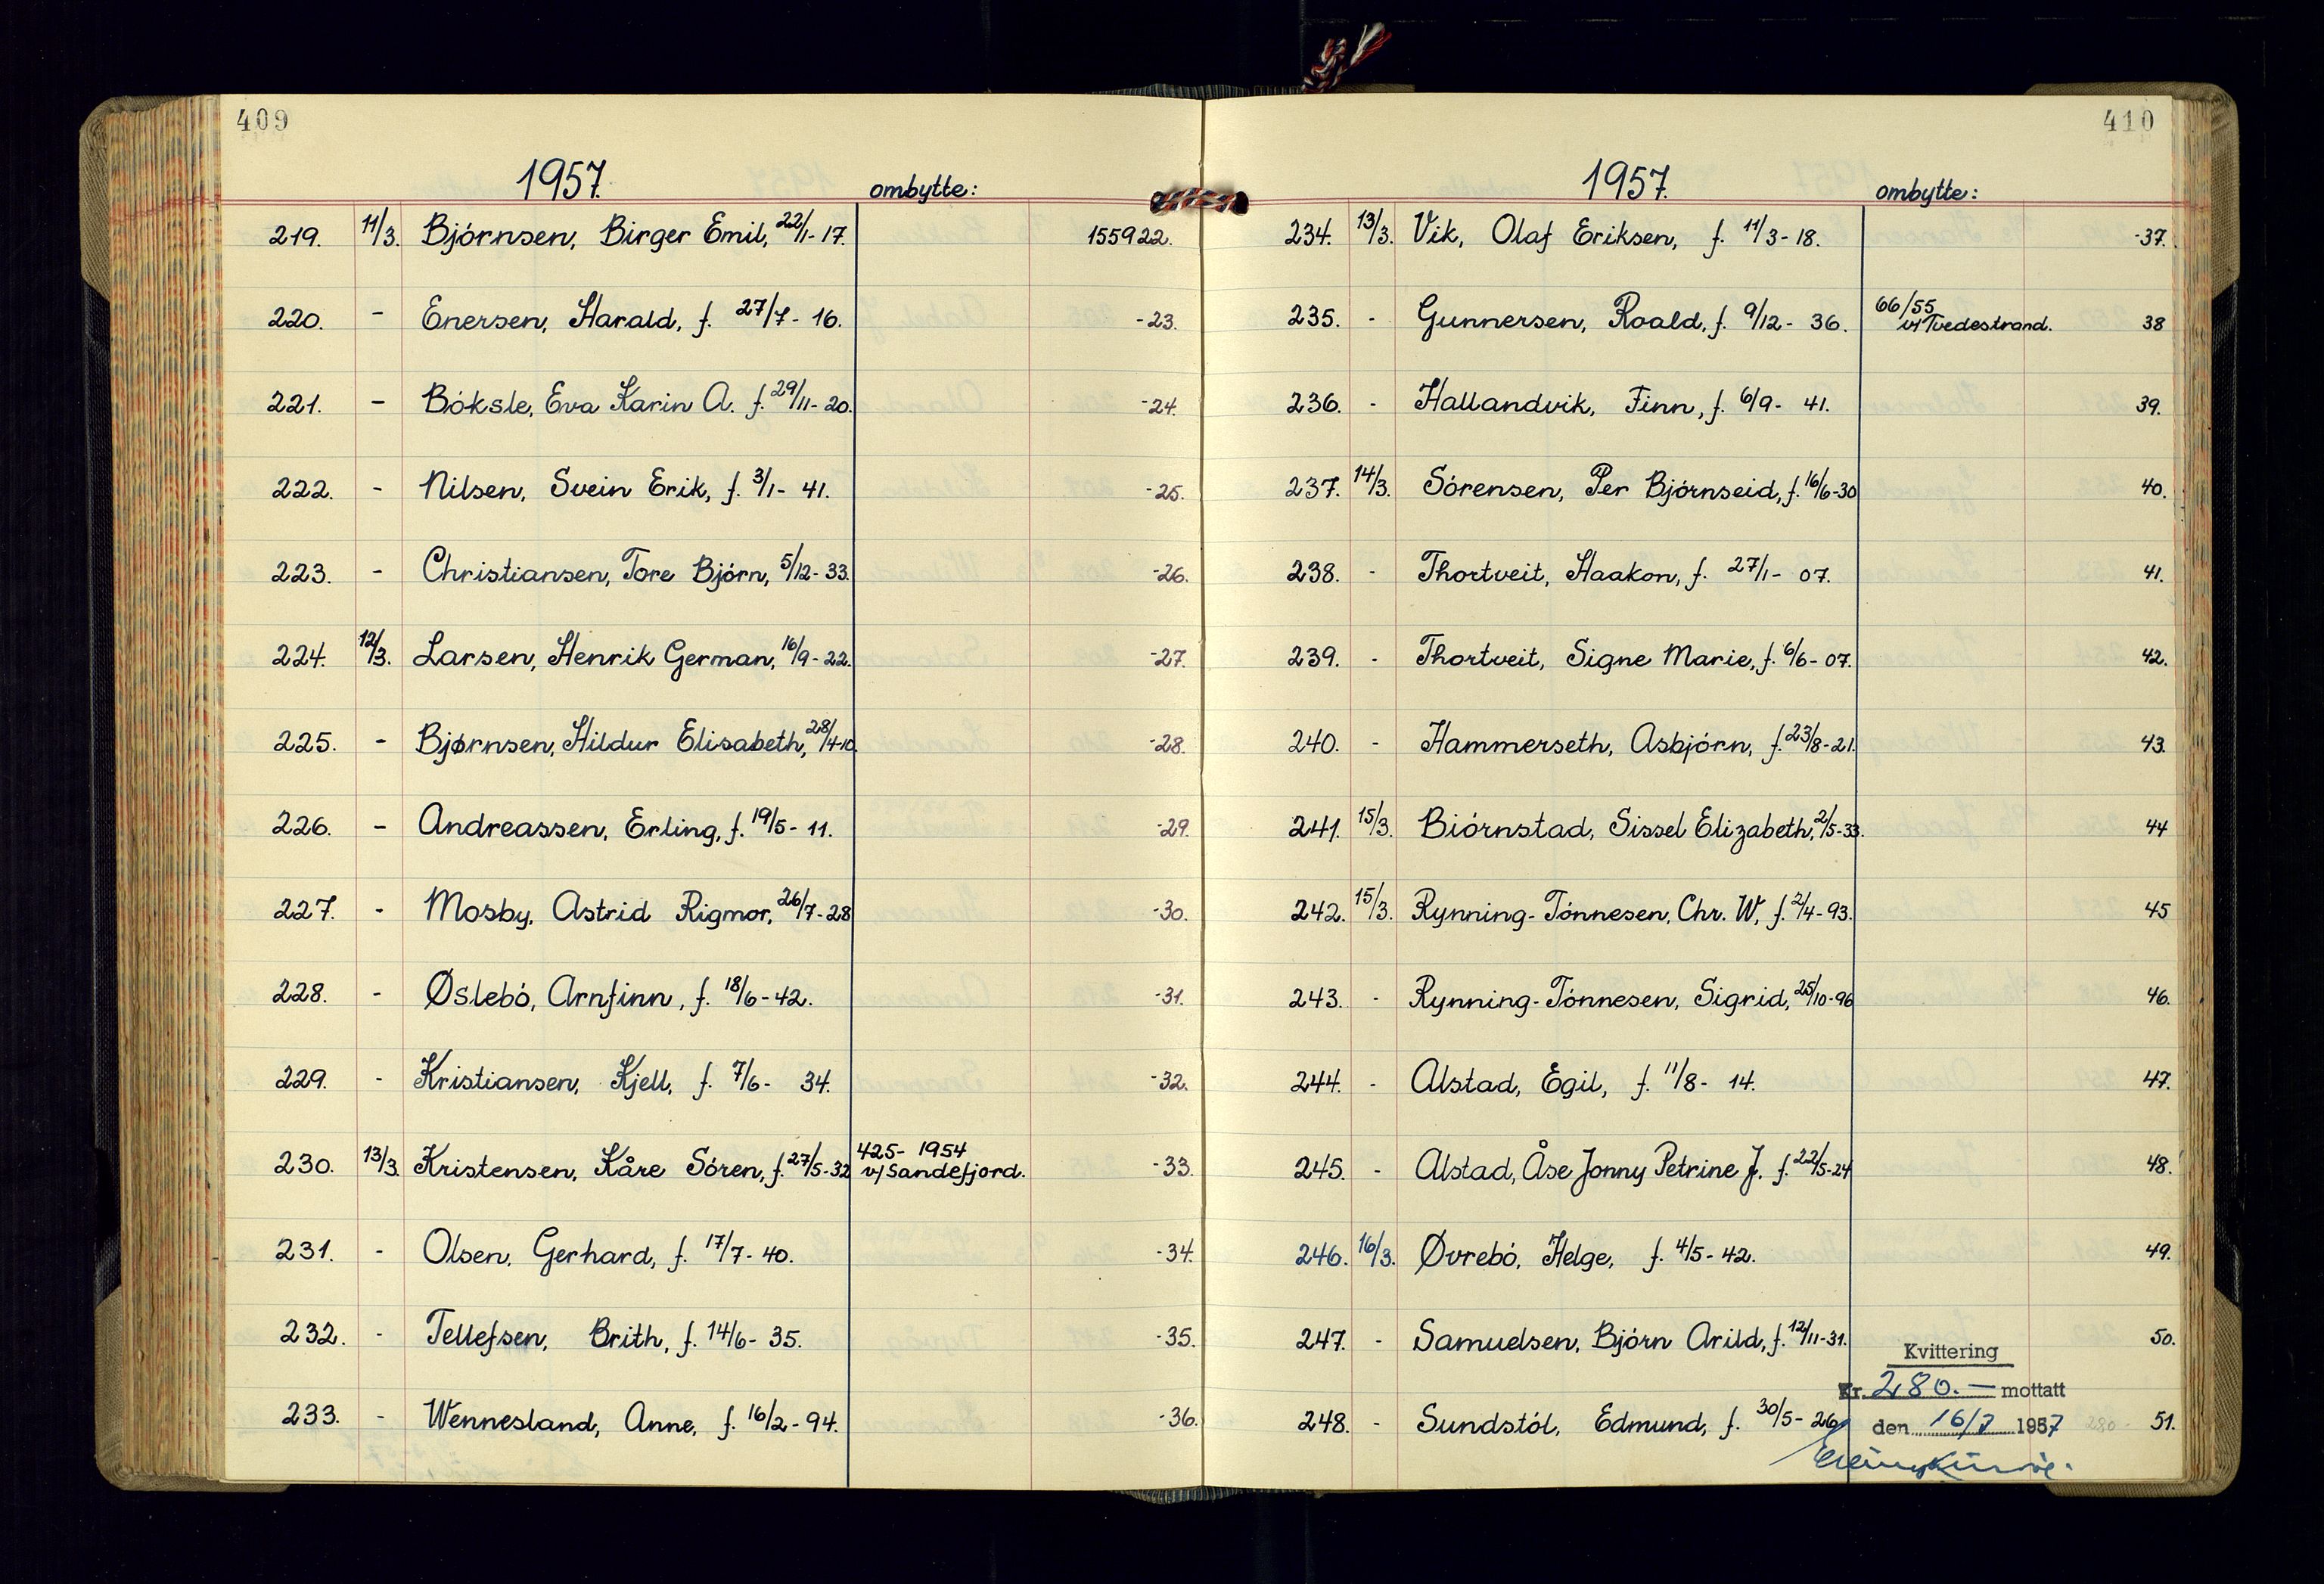 409
1957.
ombytte:
219. 11/3. Bjórnsen, Birger Emil, 22/1-17. 155922.
220. - Enersen, Harald, f. 27/7-16. -23.
221. - Bóksle, Eva Karin A. f. 29/11-20. -24.
222. - Nilsen, Svein Erik, f. 3/1-41. -25.
223. - Christiansen, Tore Bjórn, 5/12-33. -26.
224. 12/3. Larsen, Henrik German, 16/9-22. -27.
225. - Bjørnsen, Hildur Elisabeth, 28/4-10. -28.
226. - Andreassen, Erling, f. 19/5-11. -29.
227. - Mosby, Astrid Rigmor, 26/7-28 -30.
228. - Øslebó, Arnfinn, f. 18/6-42. -31.
229. - Kristiansen, Kjell, f. 7/6- 34. -32.
230. 13/3. Kristensen, Kåre Sóren, f. 27/5-32 425- 1954 v/Sandefjord. -33.
231. - Olsen, Gerhard, f. 17/7-40. -34.
232. - Tellefsen, Brith, f. 14/6-35. -35.
233. - Wennesland, Anne, f. 16/2-94. -36.
410
1957.
ombytte:
234. 13/3. Vik, Olaf Eriksen, f. 11/3-18. -37.
235. - Gunnersen, Roald, f. 9/12- 36. 66/55 v/Tvedestrand. 38
236. - Hallandvik, Finn, f. 6/9- 41. 39.
237. 14/3. Sórensen, Per Bjórnseid, f. 16/6-30 40.
238. - Thortveit, Haakon, f. 27/1- 07. 41.
239. - Thortveit, Signe Marie, f. 6/6-07. 42.
240. - Hammerseth, Asbjórn, f. 23/8-21. 43.
241. 15/3. Biórnstad, Sissel Elizabeth, 2/5-33. 44
242. 15/3. Rynning-Tónnesen, Chr. W, f. 2/4-93. 45
243. - Rynning-Tónnesen, Sigrid, 25/10-96 46.
244. - Alstad, Egil, f. 11/8- 14. 47.
245. - Alstad, Åse Jonny Petrine J. f. 22/5-24 48.
246. 16/3. Øvrebó, Helge, f. 4/5-42. 49.
247. - Samuelsen, Bjórn Arild, f. 12/11-31. 50.
248. - Sundstól, Edmund, f. 30/5-26 51.
Kvittering
Kr. 280.— mottatt
den 16/7 1957
280